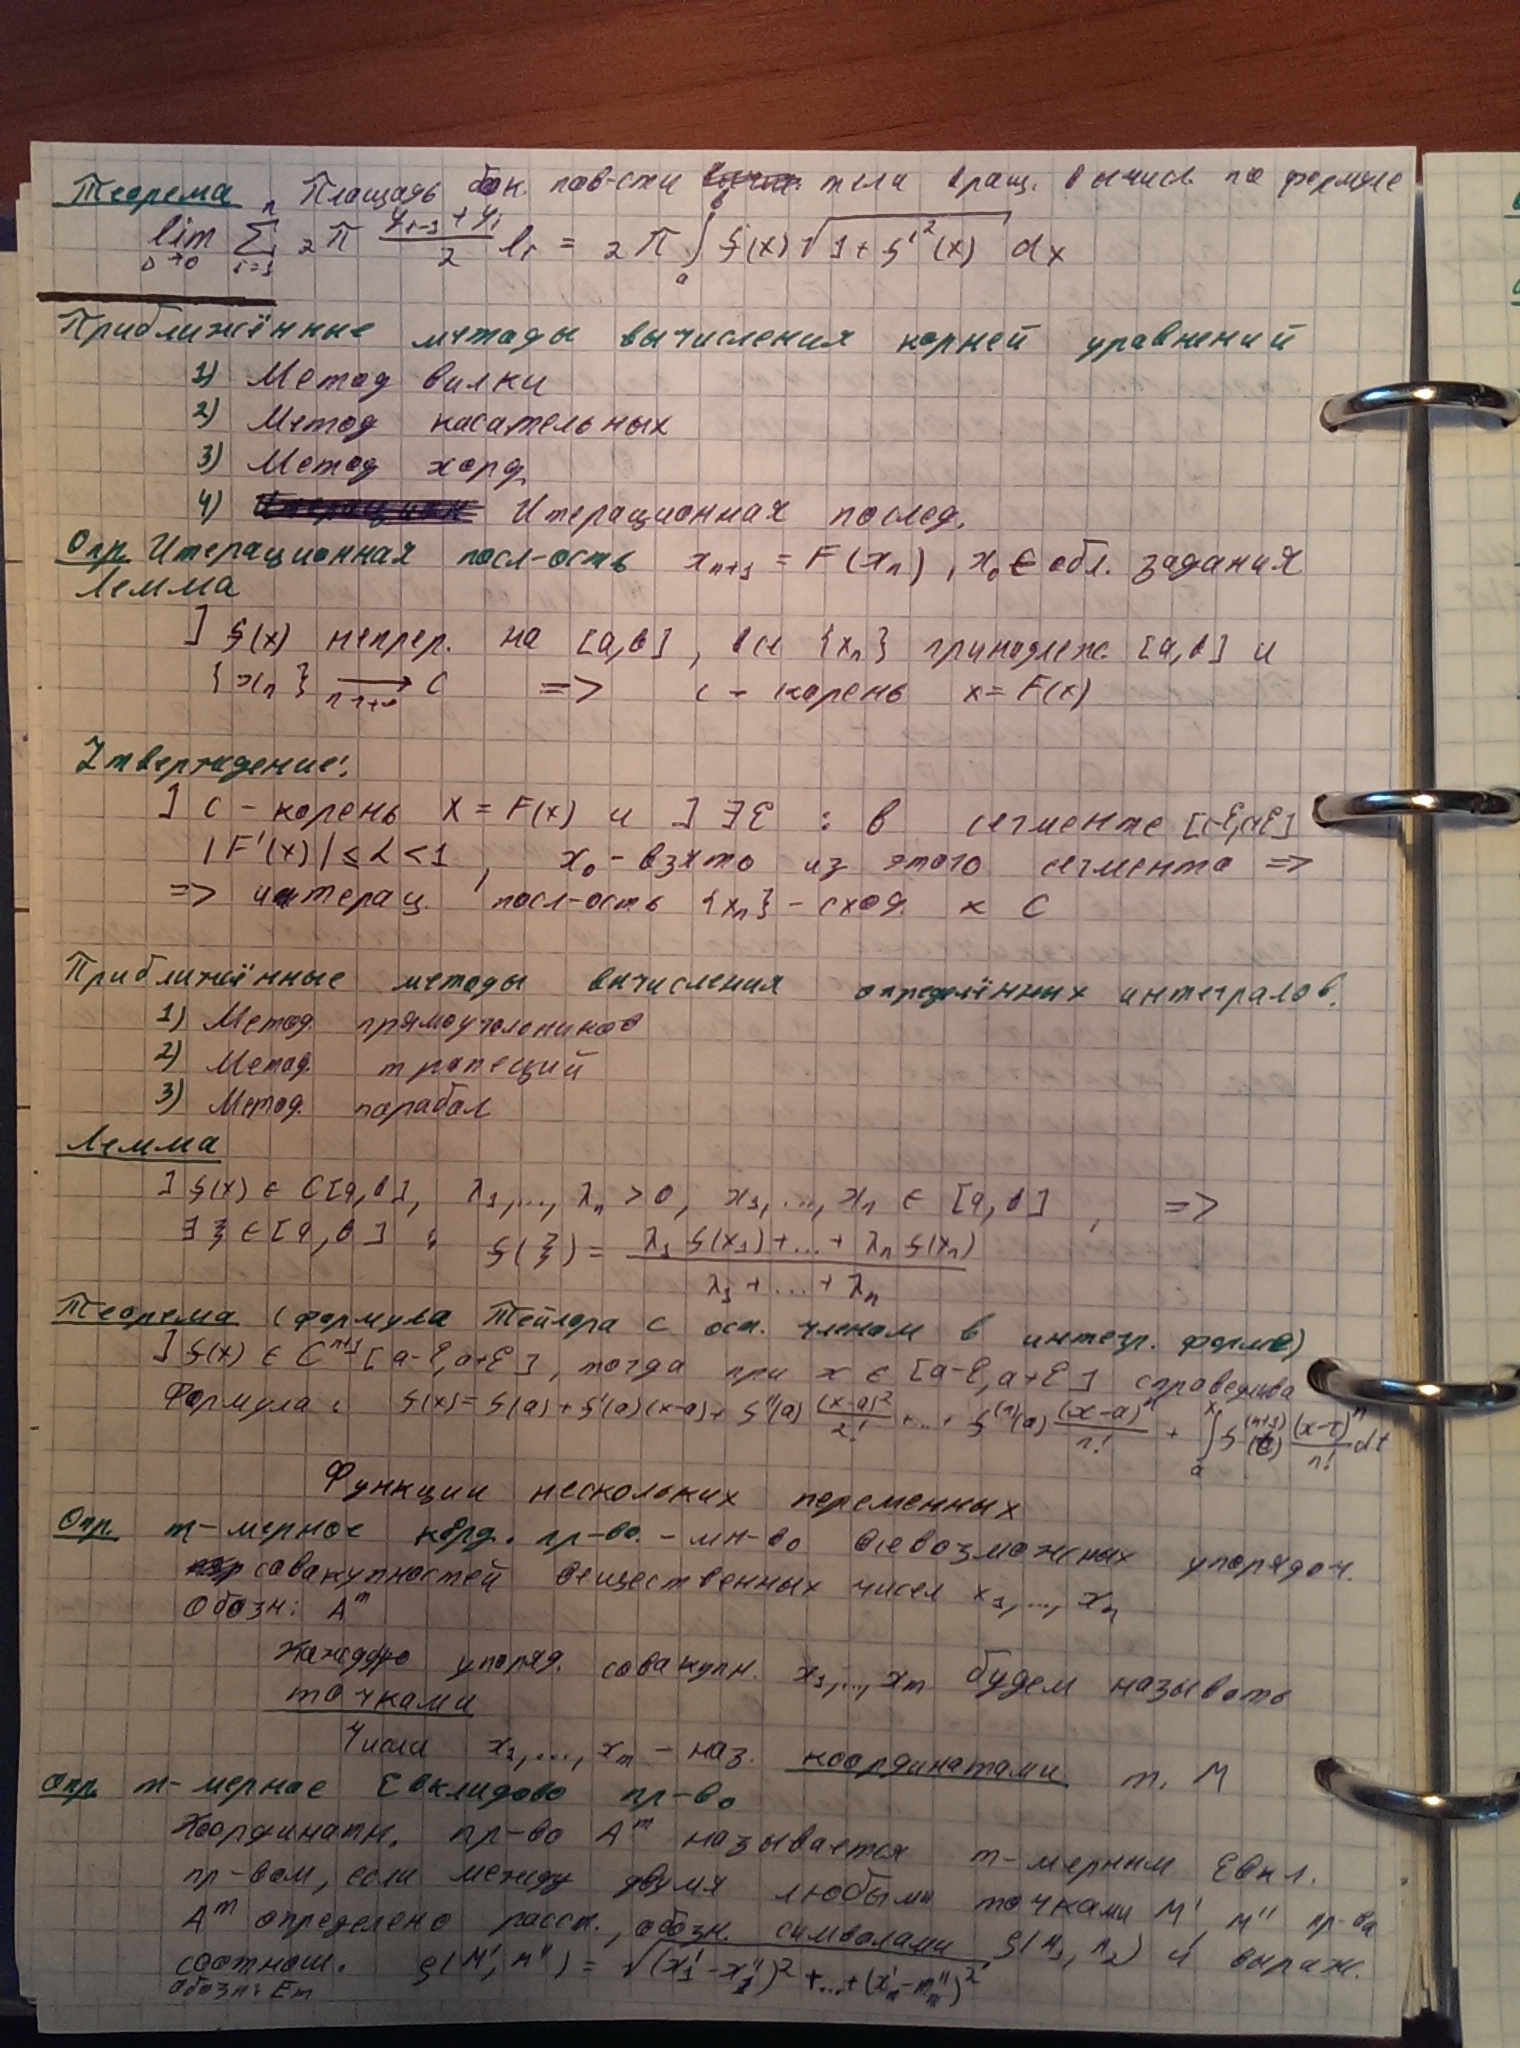 Теорема Площадь бок. пов-сти тела вращ. вычисл. по формуле
lim Δ→0 n ∑ i=1 2π (y_{i-1} + y_i)/2 l_i = 2π ∫_a^b f(x) √(1 + f'²(x)) dx
Приближённые методы вычисления корней уравнений
1) Метод вилки
2) Метод касательных
3) Метод хорд
4) Итерационная послед.
Опр. Итерационная посл-ость x_{n+1} = F(x_n), x_0 ∈ обл. задания
Лемма
] f(x) непрер. на [a,b], все {x_n} принадлеж. [a,b] и
{x_n} ⟶_{n→+∞} C => c - корень x = F(x)
Утверждение:
] C - корень X = F(x) и ] ∃ε : в сегменте [c-ε,c+ε]
|F'(x)| ≤ α < 1, x_0 - взято из этого сегмента =>
=> итерац. посл-ость {x_n} - сход. к C
Приближённые методы вычисления определённых интегралов.
1) Метод. прямоугольников
2) Метод. трапеций
3) Метод. парабол
Лемма
] f(x) ∈ C[a,b], λ_1,..., λ_n > 0, x_1,..., x_n ∈ [a,b], =>
∃ ξ ∈ [a,b] : f(ξ) = (λ_1 f(x_1) + ... + λ_n f(x_n))/(λ_1 + ... + λ_n)
Теорема (формула Тейлора с ост. членом в интегр. форме)
] f(x) ∈ C^{n+1}[a-ε,a+ε], тогда при x ∈ [a-ε,a+ε] справедлива
Формула: f(x) = f(a) + f'(a)(x-a) + f''(a) (x-a)²/2! + ... + f^{(n)}(a) (x-a)^n/n! + ∫_a^x f^{(n+1)}(t) (x-τ)^n/n! dt
Функции нескольких переменных
Опр. m-мерное коорд. пр-во. - мн-во всевозможных упорядоч.
совокупностей вещественных чисел x_1,..., x_n
Обозн: A^m
Каждую упоряд. совокупн. x_1,..., x_m будем называть
точками
Числа x_1,..., x_m - наз. координатами т. M
Опр. m-мерное Евклидово пр-во
Координатн. пр-во A^m называется m-мерным Евкл.
пр-вом, если между двумя любыми точками M', M'' пр-ва
A^m определено расст., обозн. символами ρ(M_1, M_2) и выраж.
соотнош. ρ(M', M'') = √((x'_1 - x''_1)² + ... + (x'_m - m''_m)²)
Обозн: E_m